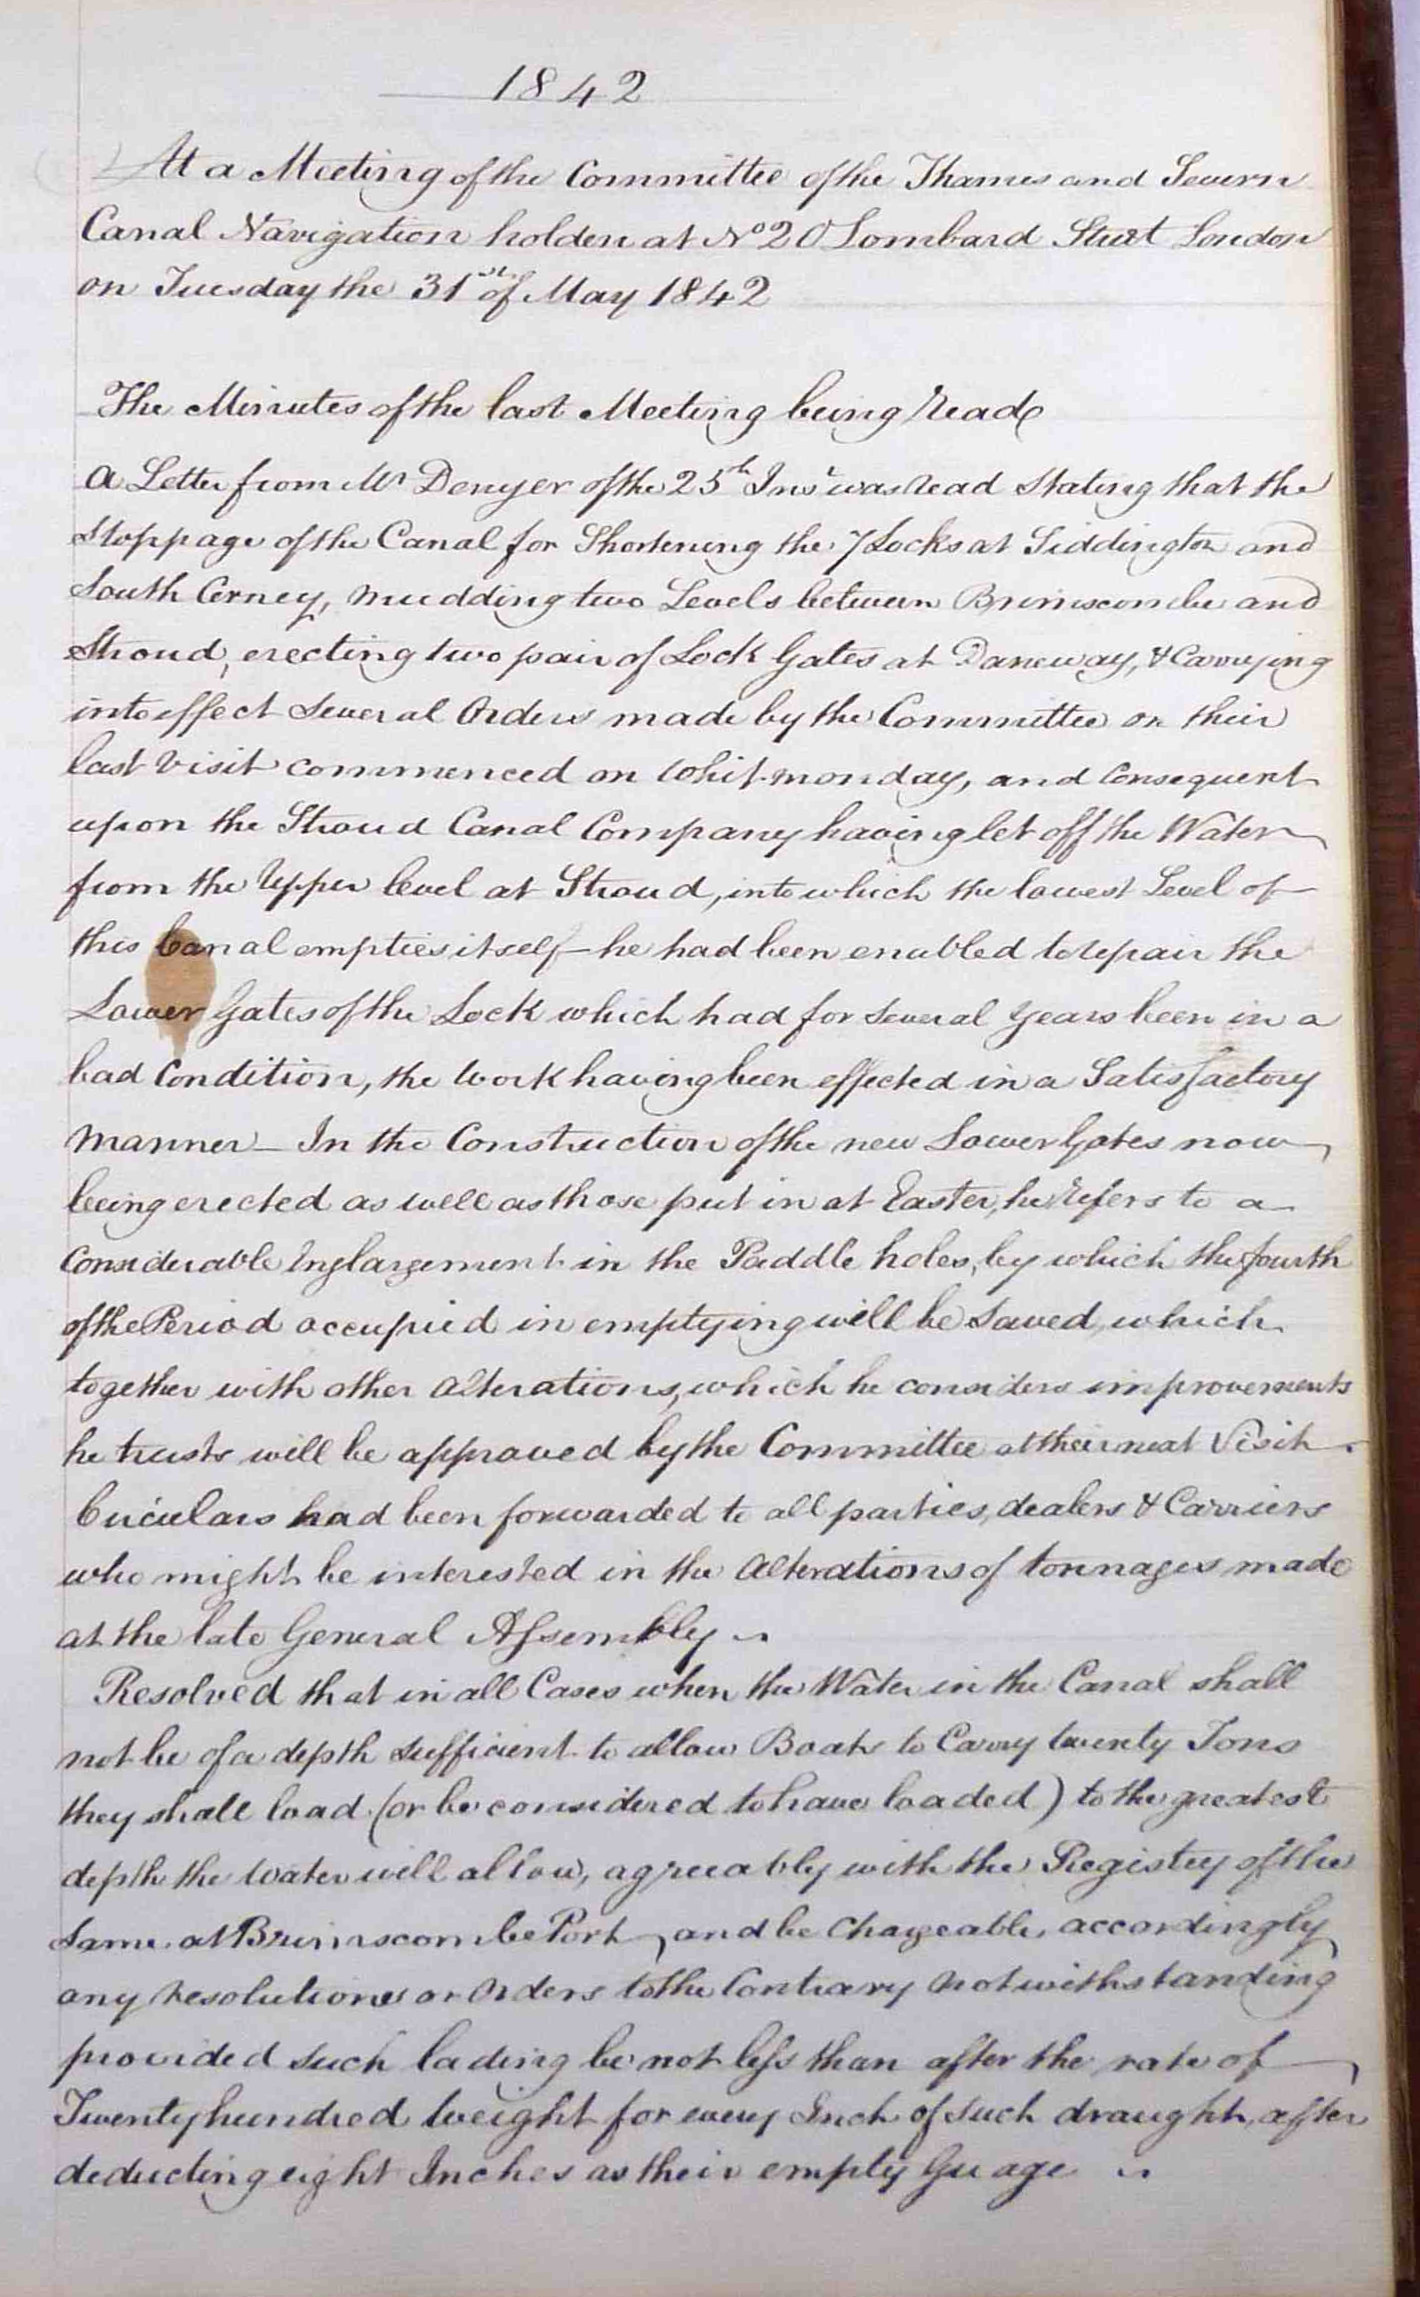 1842
At a Meeting of the Committee of the Thames and Severn
Canal Navigation holden at No 20 Lombard Street London
on Tuesday the 31st of May 1842
The Minutes of the last Meeting being read
A Letter from Mr Denyer of the 25th Inst was read stating that the
Stoppage of the Canal for Shortening the 7 Locks at Siddington and
South Cerney, mudding two Levels between Brimscombe and
Stroud, erecting two pair of Lock Gates at Daneway, & Carrying
into effect Several Orders made by the Committee on their
last Visit commenced on Whit-monday, and Consequent
upon the Stroud Canal Company having let off the Water
from the Upper level at Stroud, into which the lowest Level of
this Canal empties itself – he had been enabled to repair the
Lower Gates of the Lock which had for several years been in a
bad Condition, the Work having been effected in a Satisfactory
manner – In the Construction of the new Lower Gates now
being erected as well as those put in at Easter, he refers to a
Considerable Englargement in the Paddle holes, by which the fourth
of the Period occupied in emptying will be Saved, which
together with other Alterations, which he considers improvements
he trusts will be approved by the Committee at their next Visit.
Circulars had been forwarded to all parties, dealers & Carriers
who might be interested in the Alterations of tonnages made
at the late General Assembly
Resolved that in all Cases when the Water in the Canal shall
not be of a depth sufficient to allow Boats to Carry twenty Tons
they shall load (or be considered to have loaded) to the greatest
depth the Water will allow, agreeably with the Registry of the
Same at Brimscombe Port, and be Chargeable accordingly
any resolutions or Orders to the Contrary notwithstanding
provided such lading be not less than after the rate of
Twenty hundred Weight for every Inch of such draught, after
deducting eight Inches as their empty Guage